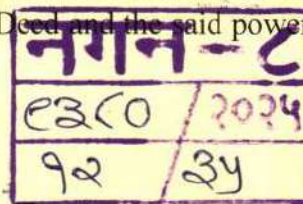 Deed and the said power
नगन - ८
९३८० / २०२५
१२ / ३५